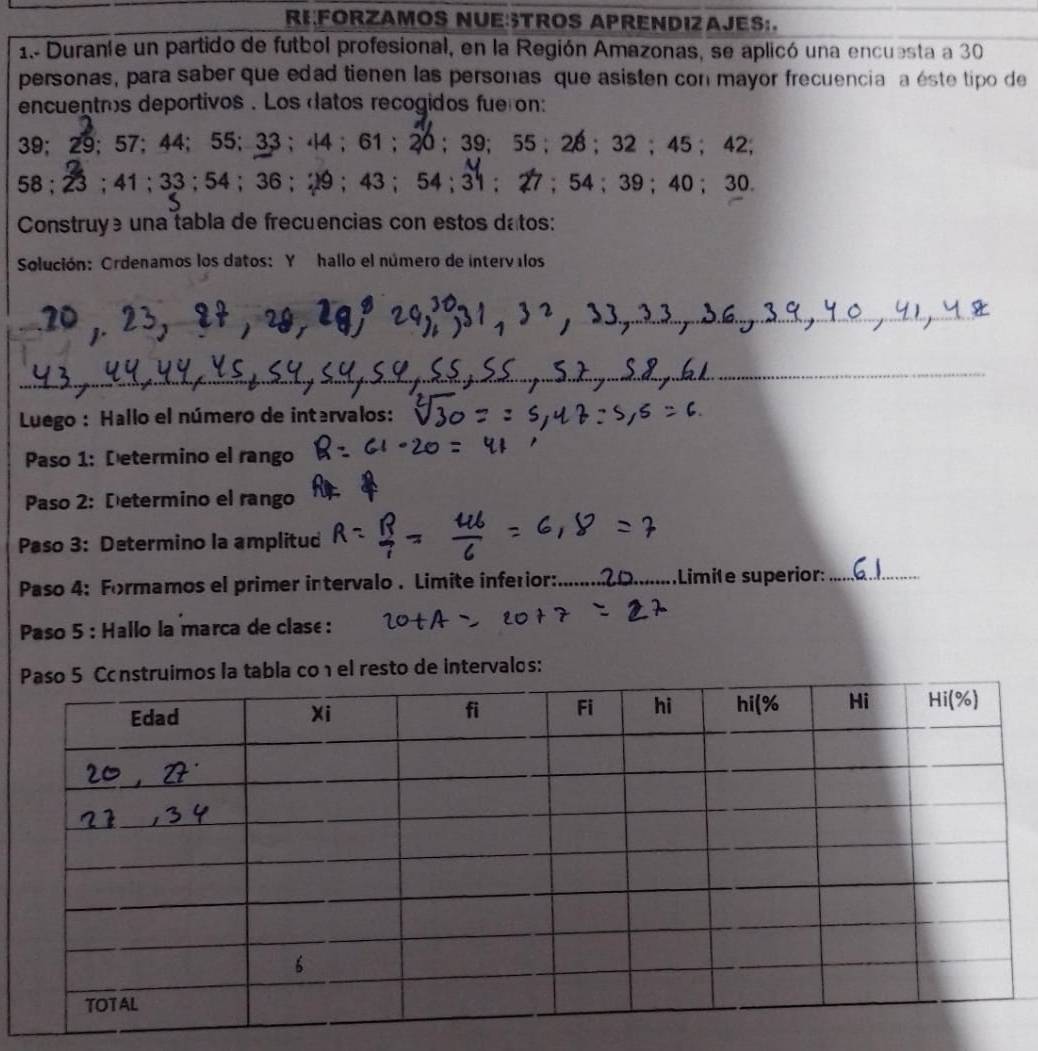 REFORZAMOS NUESTROS APRENDIZAJES:.
1.- Durante un partido de futbol profesional, en la Región Amazonas, se aplicó una encuesta a 30
personas, para saber que edad tienen las personas que asisten con mayor frecuencia a éste tipo de
encuentros deportivos . Los datos recogidos fueron:
39; 29; 57; 44; 55; 33 ; 44 ; 61 ; 20 ; 39; 55 ; 28 ; 32 ; 45 ; 42;
58 ; 23 ; 41 ; 33 ; 54 ; 36 ; 29 ; 43 ; 54 ; 31 ; 27 ; 54 ; 39 ; 40 ; 30.
5
Construya una tabla de frecuencias con estos datos:
Solución: Ordenamos los datos: Y hallo el número de intervalos
20, 23, 27, 28, 29, 29, 30, 31, 32, 33, 33, 36, 39, 40, 41, 42
43, 44, 44, 45, 54, 54, 54, 55, 55, 57, 58, 61
Luego : Hallo el número de intervalos: √30 = = 5,47 = 5,5 = 6.
Paso 1: Determino el rango R = 61 - 20 = 41
Paso 2: Determino el rango
Paso 3: Determino la amplitud R = R/i = 41/6 = 6,8 = 7
Paso 4: Formamos el primer intervalo . Limite inferior:........20.........Limite superior: .....61.........
Paso 5 : Hallo la marca de clase: 20+A = 20+7 = 27
Paso 5 Construimos la tabla con el resto de intervalos:
Edad Xi fi Fi hi hi(% Hi Hi(%)
20, 27
27, 34
6
TOTAL